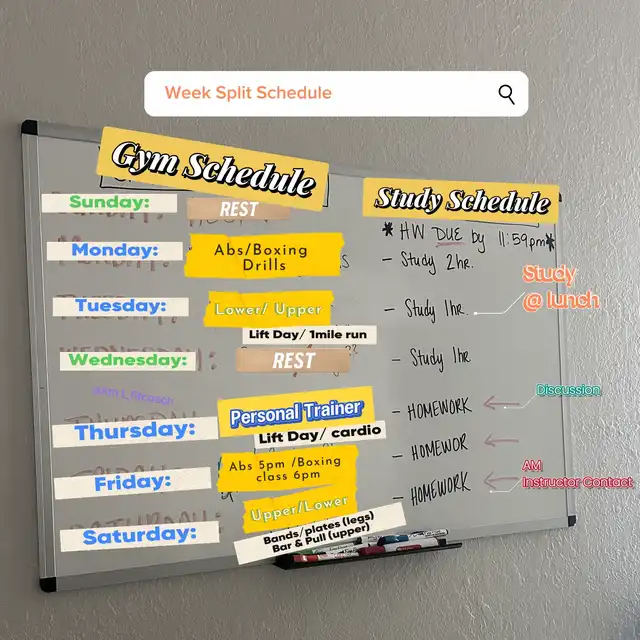 Week Split Schedule
Gym Schedule
Sunday:
REST
Monday:
Abs/Boxing
Drills
Tuesday:
Lower/ Upper
Lift Day/ 1mile run
Wednesday:
REST
Thursday:
Personal Trainer
Lift Day/ cardio
Friday:
Abs 5pm /Boxing
class 6pm
Saturday:
Upper/Lower
Bands/plates (legs)
Bar & Pull (upper)
Study Schedule
* HW DUE by 11:59pm *
- Study 2hr.
- Study 1hr.
Study
@ lunch
- Study 1hr
- HOMEWORK
Discussion
- HOMEWOR
- HOMEWORK
AM
Instructor Contact